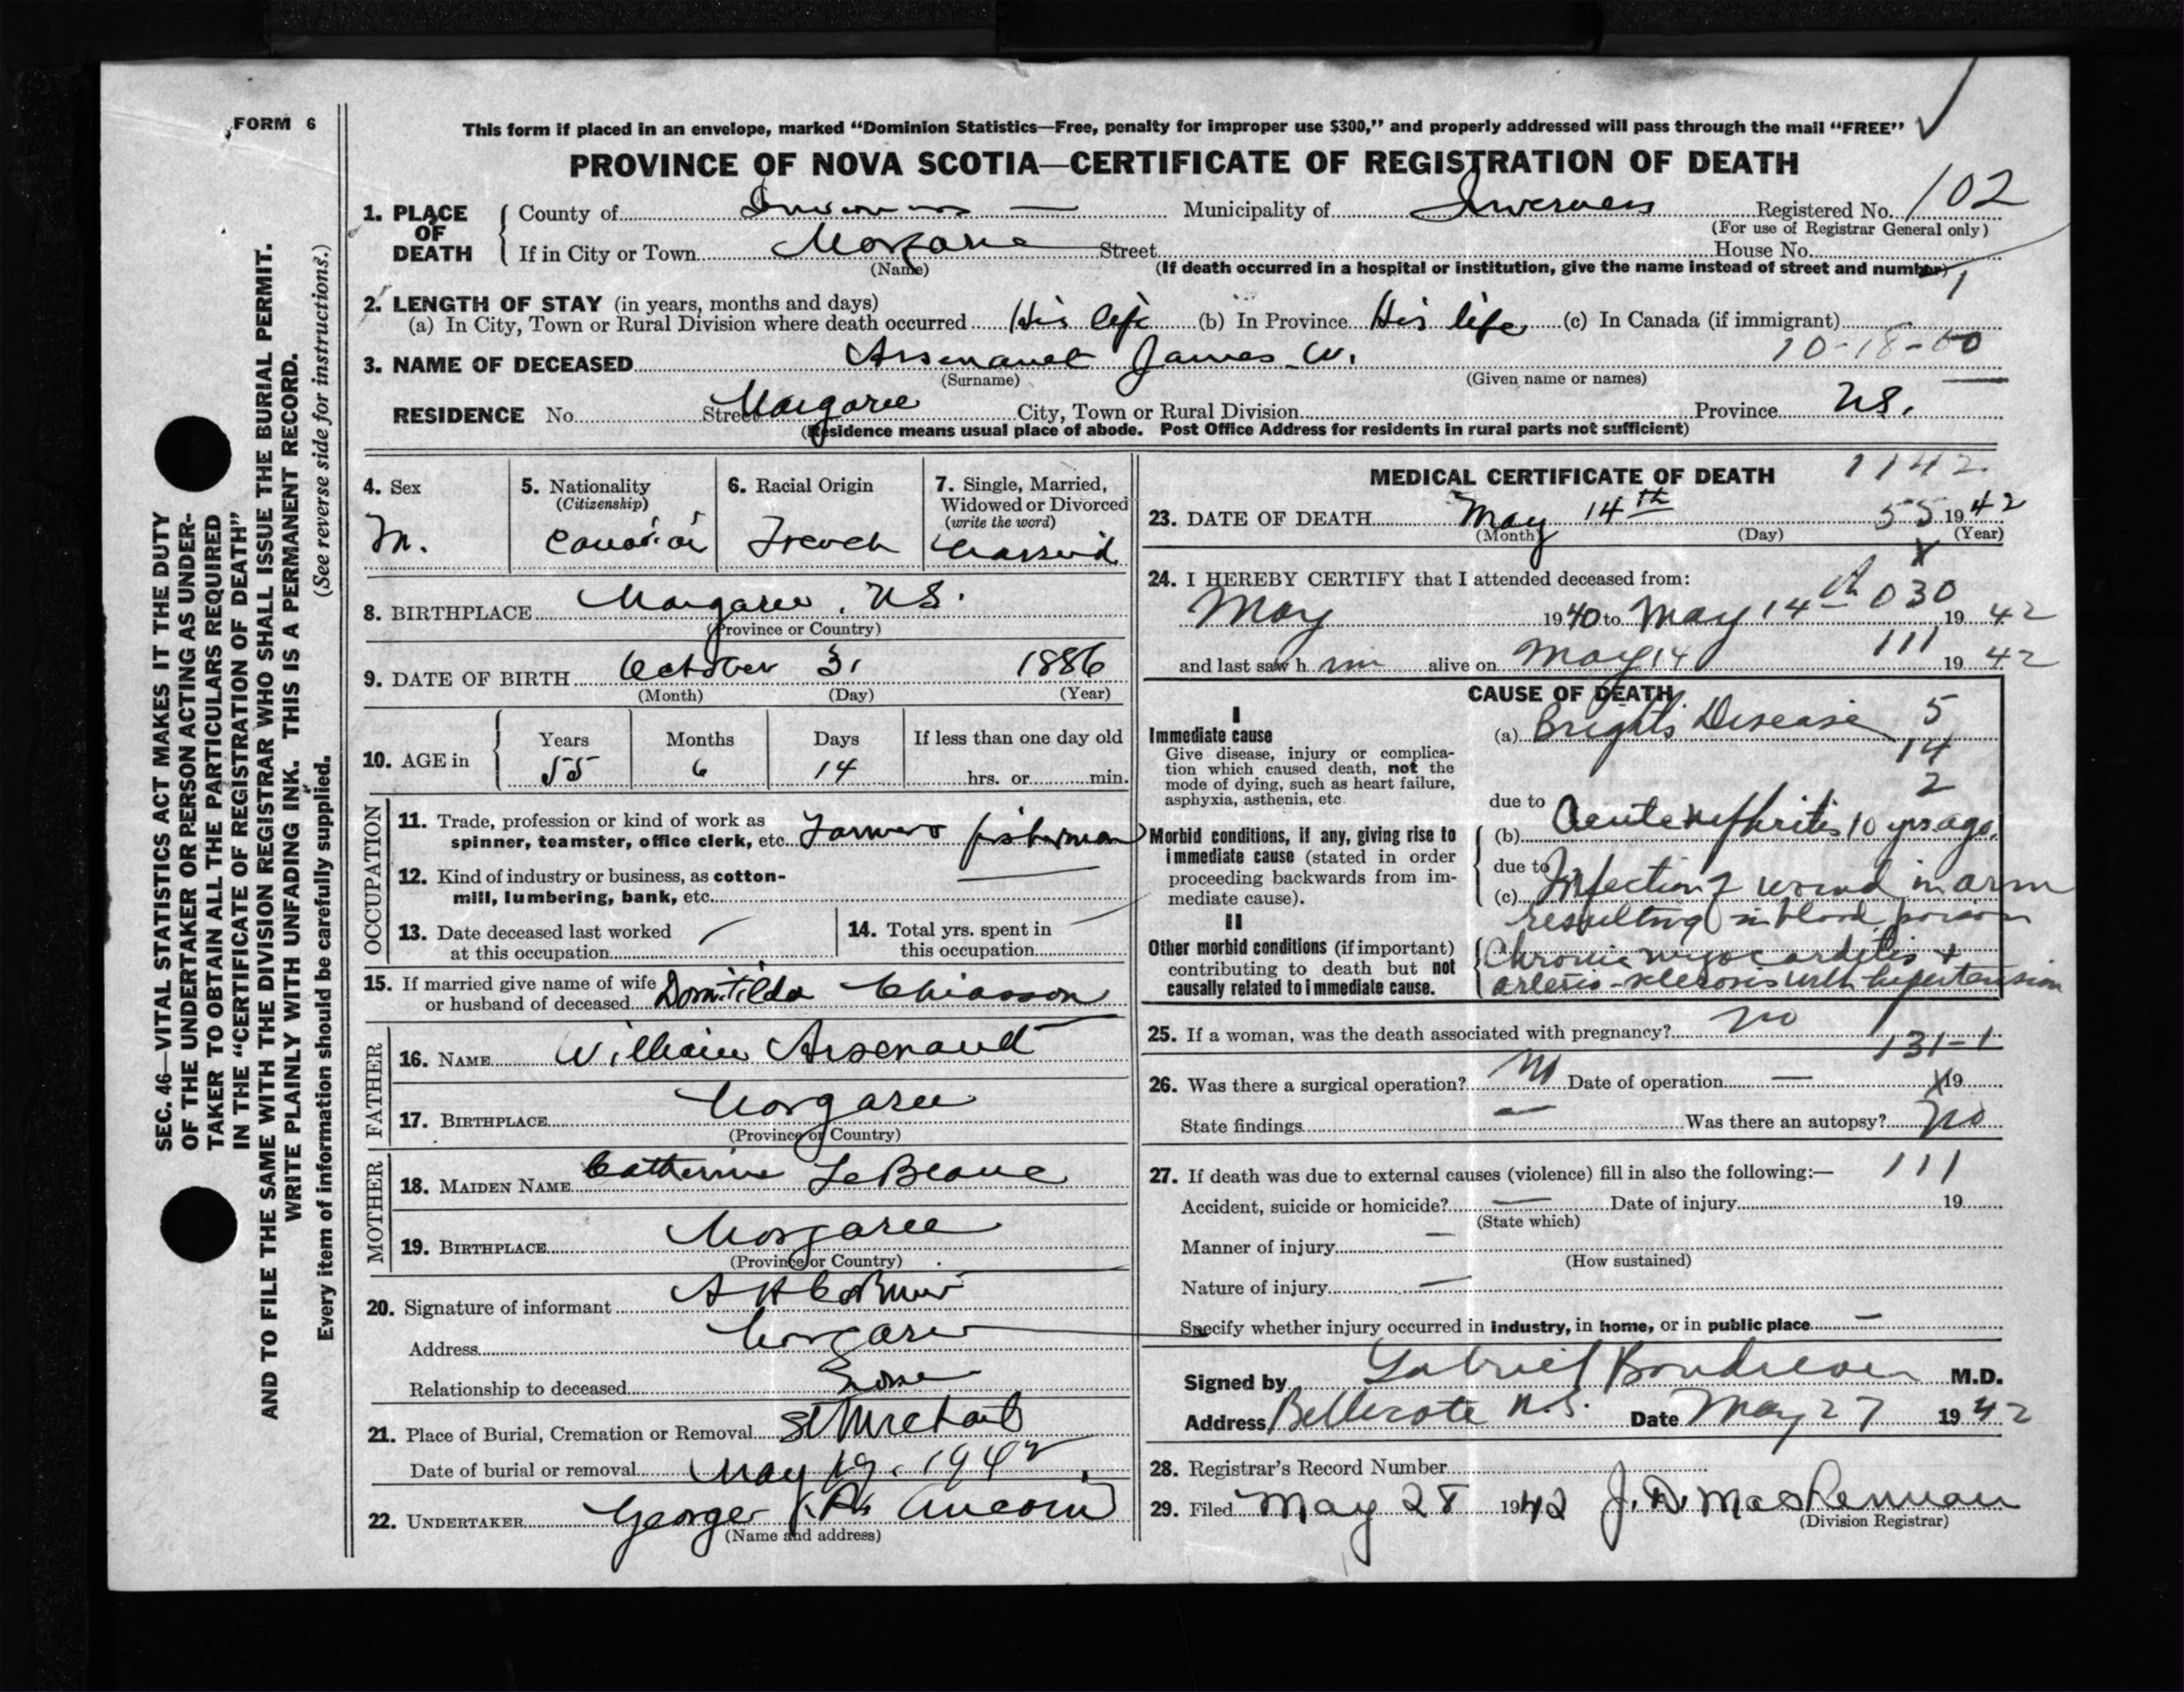 FORM 6
This form if placed in an envelope, marked “Dominion Statistics—Free, penalty for improper use $300,” and properly addressed will pass through the mail “FREE”
PROVINCE OF NOVA SCOTIA—CERTIFICATE OF REGISTRATION OF DEATH
SEC. 46—VITAL STATISTICS ACT MAKES IT THE DUTY
OF THE UNDERTAKER OR PERSON ACTING AS UNDER-
TAKER TO OBTAIN ALL THE PARTICULARS REQUIRED
IN THE “CERTIFICATE OF REGISTRATION OF DEATH”
AND TO FILE THE SAME WITH THE DIVISION REGISTRAR WHO SHALL ISSUE THE BURIAL PERMIT.
WRITE PLAINLY WITH UNFADING INK. THIS IS A PERMANENT RECORD.
Every item of information should be carefully supplied. (See reverse side for instructions.)
1. PLACE OF DEATH
County of Inverness Municipality of Inverness Registered No. 102
(For use of Registrar General only)
If in City or Town Margaree Street House No.
(Name) (If death occurred in a hospital or institution, give the name instead of street and number)
1
2. LENGTH OF STAY (in years, months and days)
(a) In City, Town or Rural Division where death occurred His life (b) In Province His life (c) In Canada (if immigrant)
10-18-60
3. NAME OF DECEASED Arsenault James W.
(Surname) (Given name or names)
RESIDENCE No. Street Margaree City, Town or Rural Division Province N.S.
(Residence means usual place of abode. Post Office Address for residents in rural parts not sufficient)
4. Sex M.
5. Nationality (Citizenship) Canadian
6. Racial Origin French
7. Single, Married, Widowed or Divorced (write the word) Married
8. BIRTHPLACE Margaree. N.S.
(Province or Country)
9. DATE OF BIRTH October 31 1886
(Month) (Day) (Year)
10. AGE in Years 55 Months 6 Days 14 If less than one day old hrs. or min.
OCCUPATION
11. Trade, profession or kind of work as
spinner, teamster, office clerk, etc. Farmer fisherman
12. Kind of industry or business, as cotton-
mill, lumbering, bank, etc.
13. Date deceased last worked
at this occupation
14. Total yrs. spent in
this occupation
15. If married give name of wife
or husband of deceased Domitilda Chiasson
FATHER
16. NAME William Arsenault
17. BIRTHPLACE Margaree
(Province or Country)
MOTHER
18. MAIDEN NAME Catherine LeBlanc
19. BIRTHPLACE Margaree
(Province or Country)
20. Signature of informant A H
Address Margaree
Relationship to deceased
21. Place of Burial, Cremation or Removal St Michael
Date of burial or removal May 19. 1942
22. UNDERTAKER George Aucoin
(Name and address)
MEDICAL CERTIFICATE OF DEATH 1142
23. DATE OF DEATH May 14th 55 1942
(Month) (Day) (Year)
24. I HEREBY CERTIFY that I attended deceased from:
May 1940 to May 14th 030 1942
and last saw him alive on May 14 111 1942
CAUSE OF DEATH
I
Immediate cause
Give disease, injury or complica-
tion which caused death, not the
mode of dying, such as heart failure,
asphyxia, asthenia, etc.
(a) Brights Disease 5
14
2
due to
Morbid conditions, if any, giving rise to
immediate cause (stated in order
proceeding backwards from im-
mediate cause).
(b) Acute nephritis 10 yrs ago.
due to
(c) Infection of wound in arm
resulting in blood poison
II
Other morbid conditions (if important)
contributing to death but not
causally related to immediate cause.
Chronic myocarditis +
arterio-sclerosis with hypertension
25. If a woman, was the death associated with pregnancy? no
131-1
26. Was there a surgical operation? no Date of operation — X 19
State findings — Was there an autopsy? no
27. If death was due to external causes (violence) fill in also the following:— 111
Accident, suicide or homicide? — Date of injury 19
(State which)
Manner of injury —
(How sustained)
Nature of injury —
Specify whether injury occurred in industry, in home, or in public place —
Signed by Gabriel Boudreau M.D.
Address Bellecote N.S. Date May 27 1942
28. Registrar's Record Number
29. Filed May 28 1942 J. D. MacLennan
(Division Registrar)